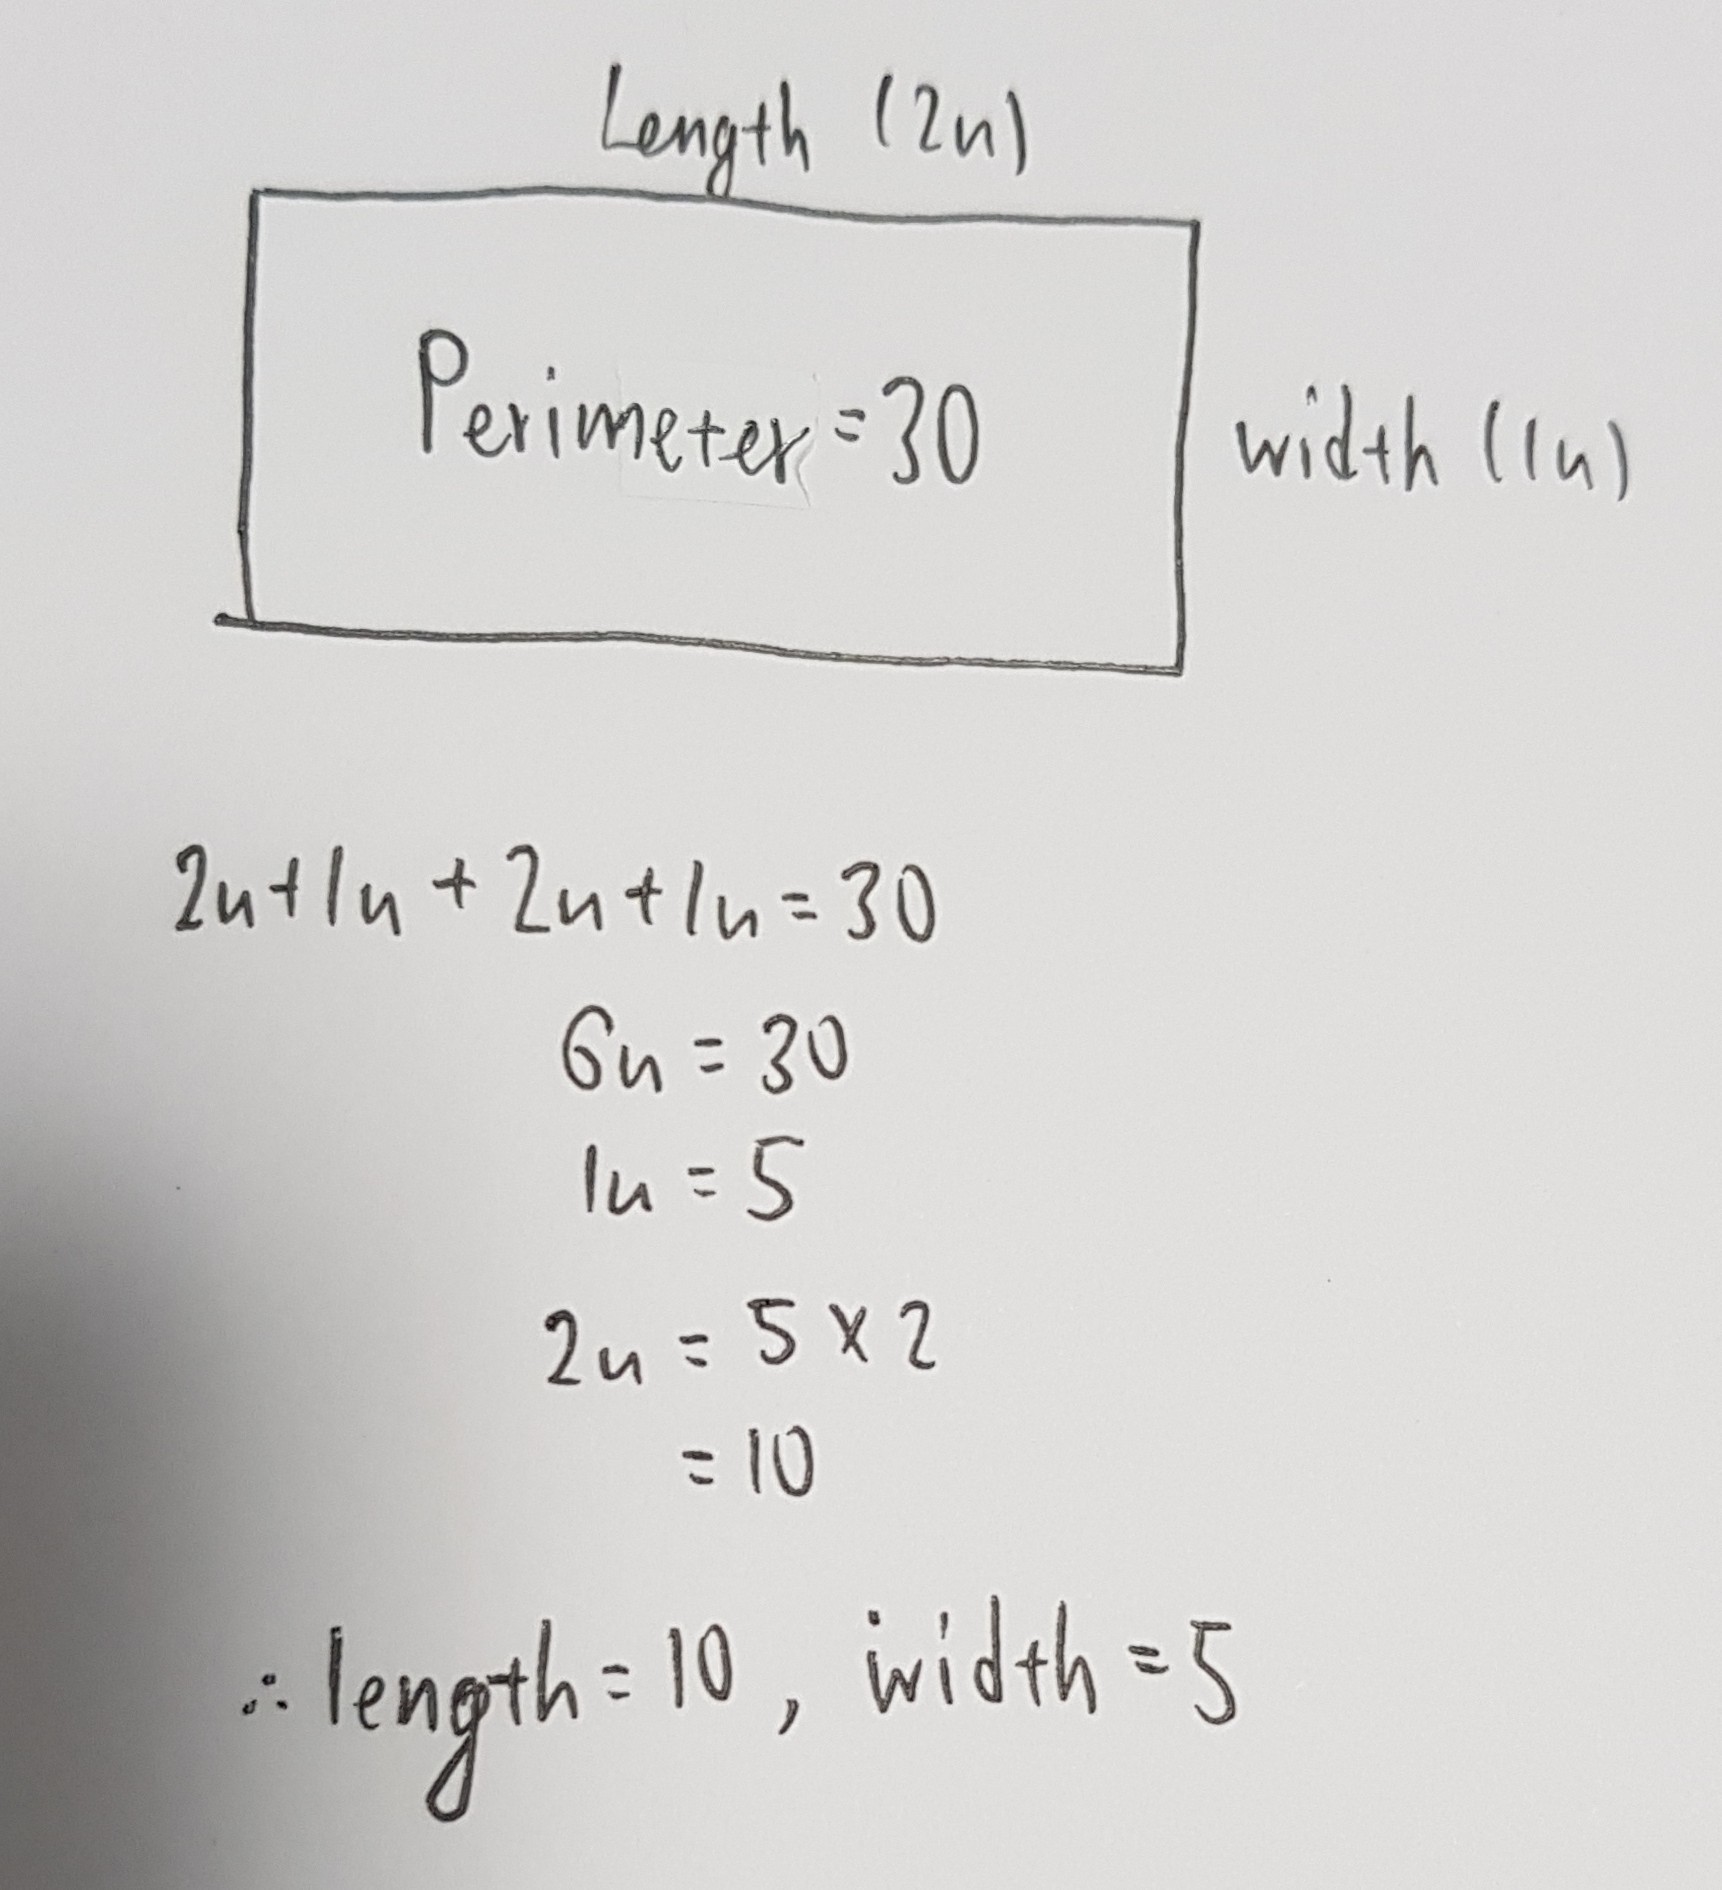 Length (2u)
Perimeter = 30
width (1u)
2u + 1u + 2u + 1u = 30
6u = 30
1u = 5
2u = 5 × 2
= 10
∴ length = 10, width = 5